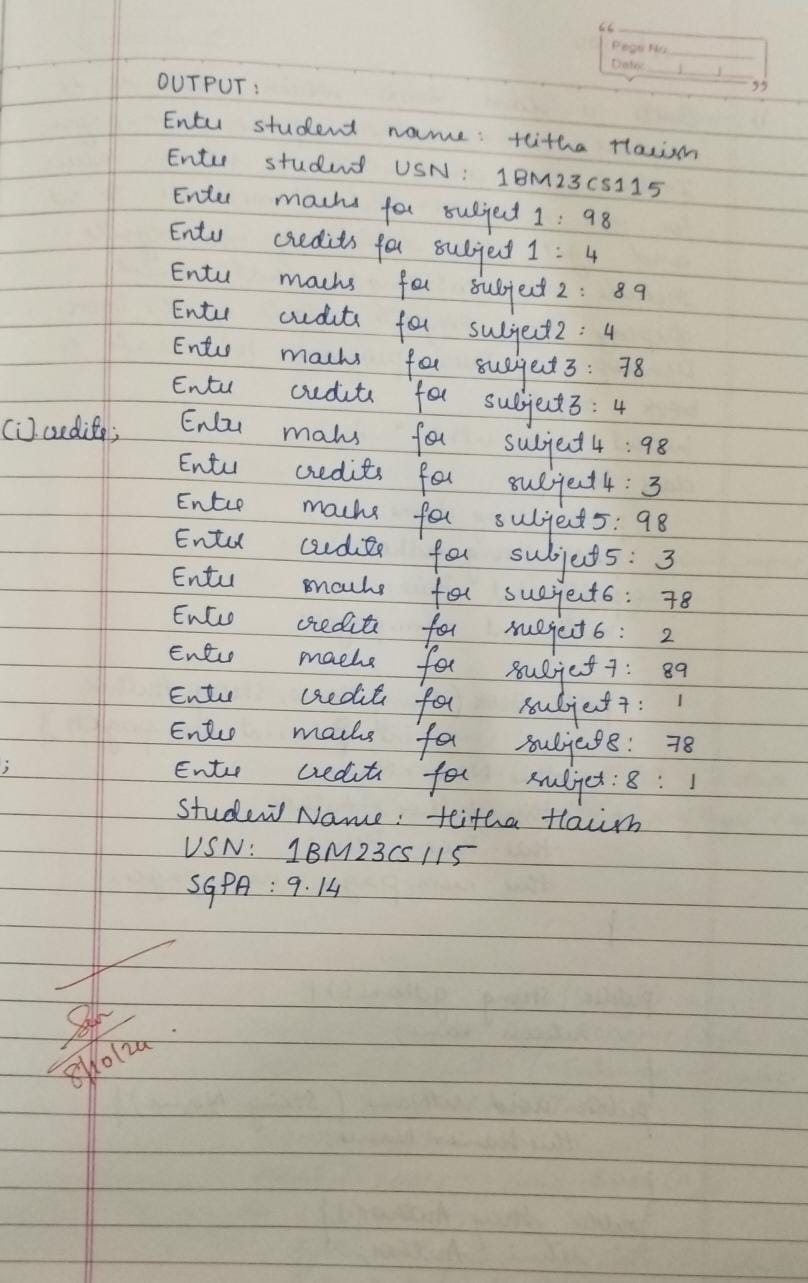 Page No.
Date:
OUTPUT:
Enter student name: Hitha Harish
Enter student USN: 1BM23CS115
Enter marks for subject 1: 98
Enter credits for subject 1: 4
Enter marks for subject 2: 89
Enter credits for subject 2: 4
Enter marks for subject 3: 78
Enter credits for subject 3: 4
(i).credits; Enter marks for subject 4: 98
Enter credits for subject 4: 3
Enter marks for subject 5: 98
Enter credits for subject 5: 3
Enter marks for subject 6: 78
Enter credits for subject 6: 2
Enter marks for subject 7: 89
Enter credits for subject 7: 1
Enter marks for subject 8: 78
; Enter credits for subjet: 8: 1
Student Name: Hitha Harish
USN: 1BM23CS115
SGPA: 9.14
8/10/24